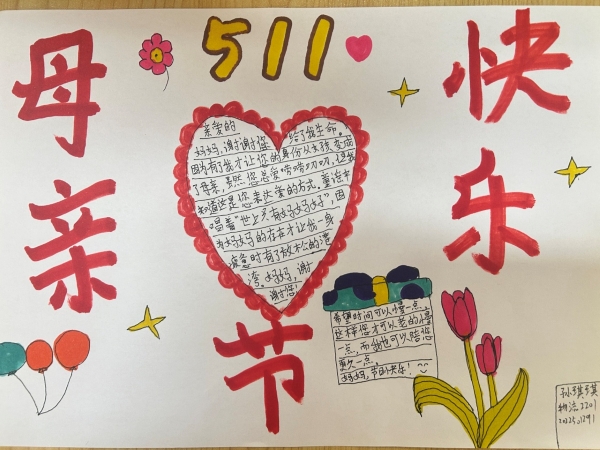 511
母亲节
快乐
亲爱的
妈妈,谢谢您给了我生命。
因为有了我才让您的身份从女孩变成
了母亲,虽然您总爱唠唠叨叨,但我
知道这是您表达爱的方式。童话中
唱着“世上只有妈妈好”,因
为妈妈的存在才让我一身
疲惫时有了放松的港
湾。妈妈,谢
谢您!
希望时间可以慢一点,
这样您才可以老的慢
一点,而我也可以陪您
更久一点。
妈妈,节日快乐!
物流2201